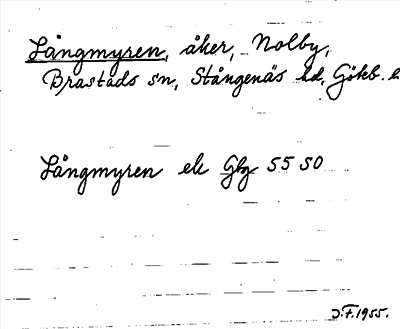 Långmyren, åker, Nolby,
Brastads sn, Stångenäs hd, Göteb.
Långmyren ek Gbg 55 50
J.F. 1955.